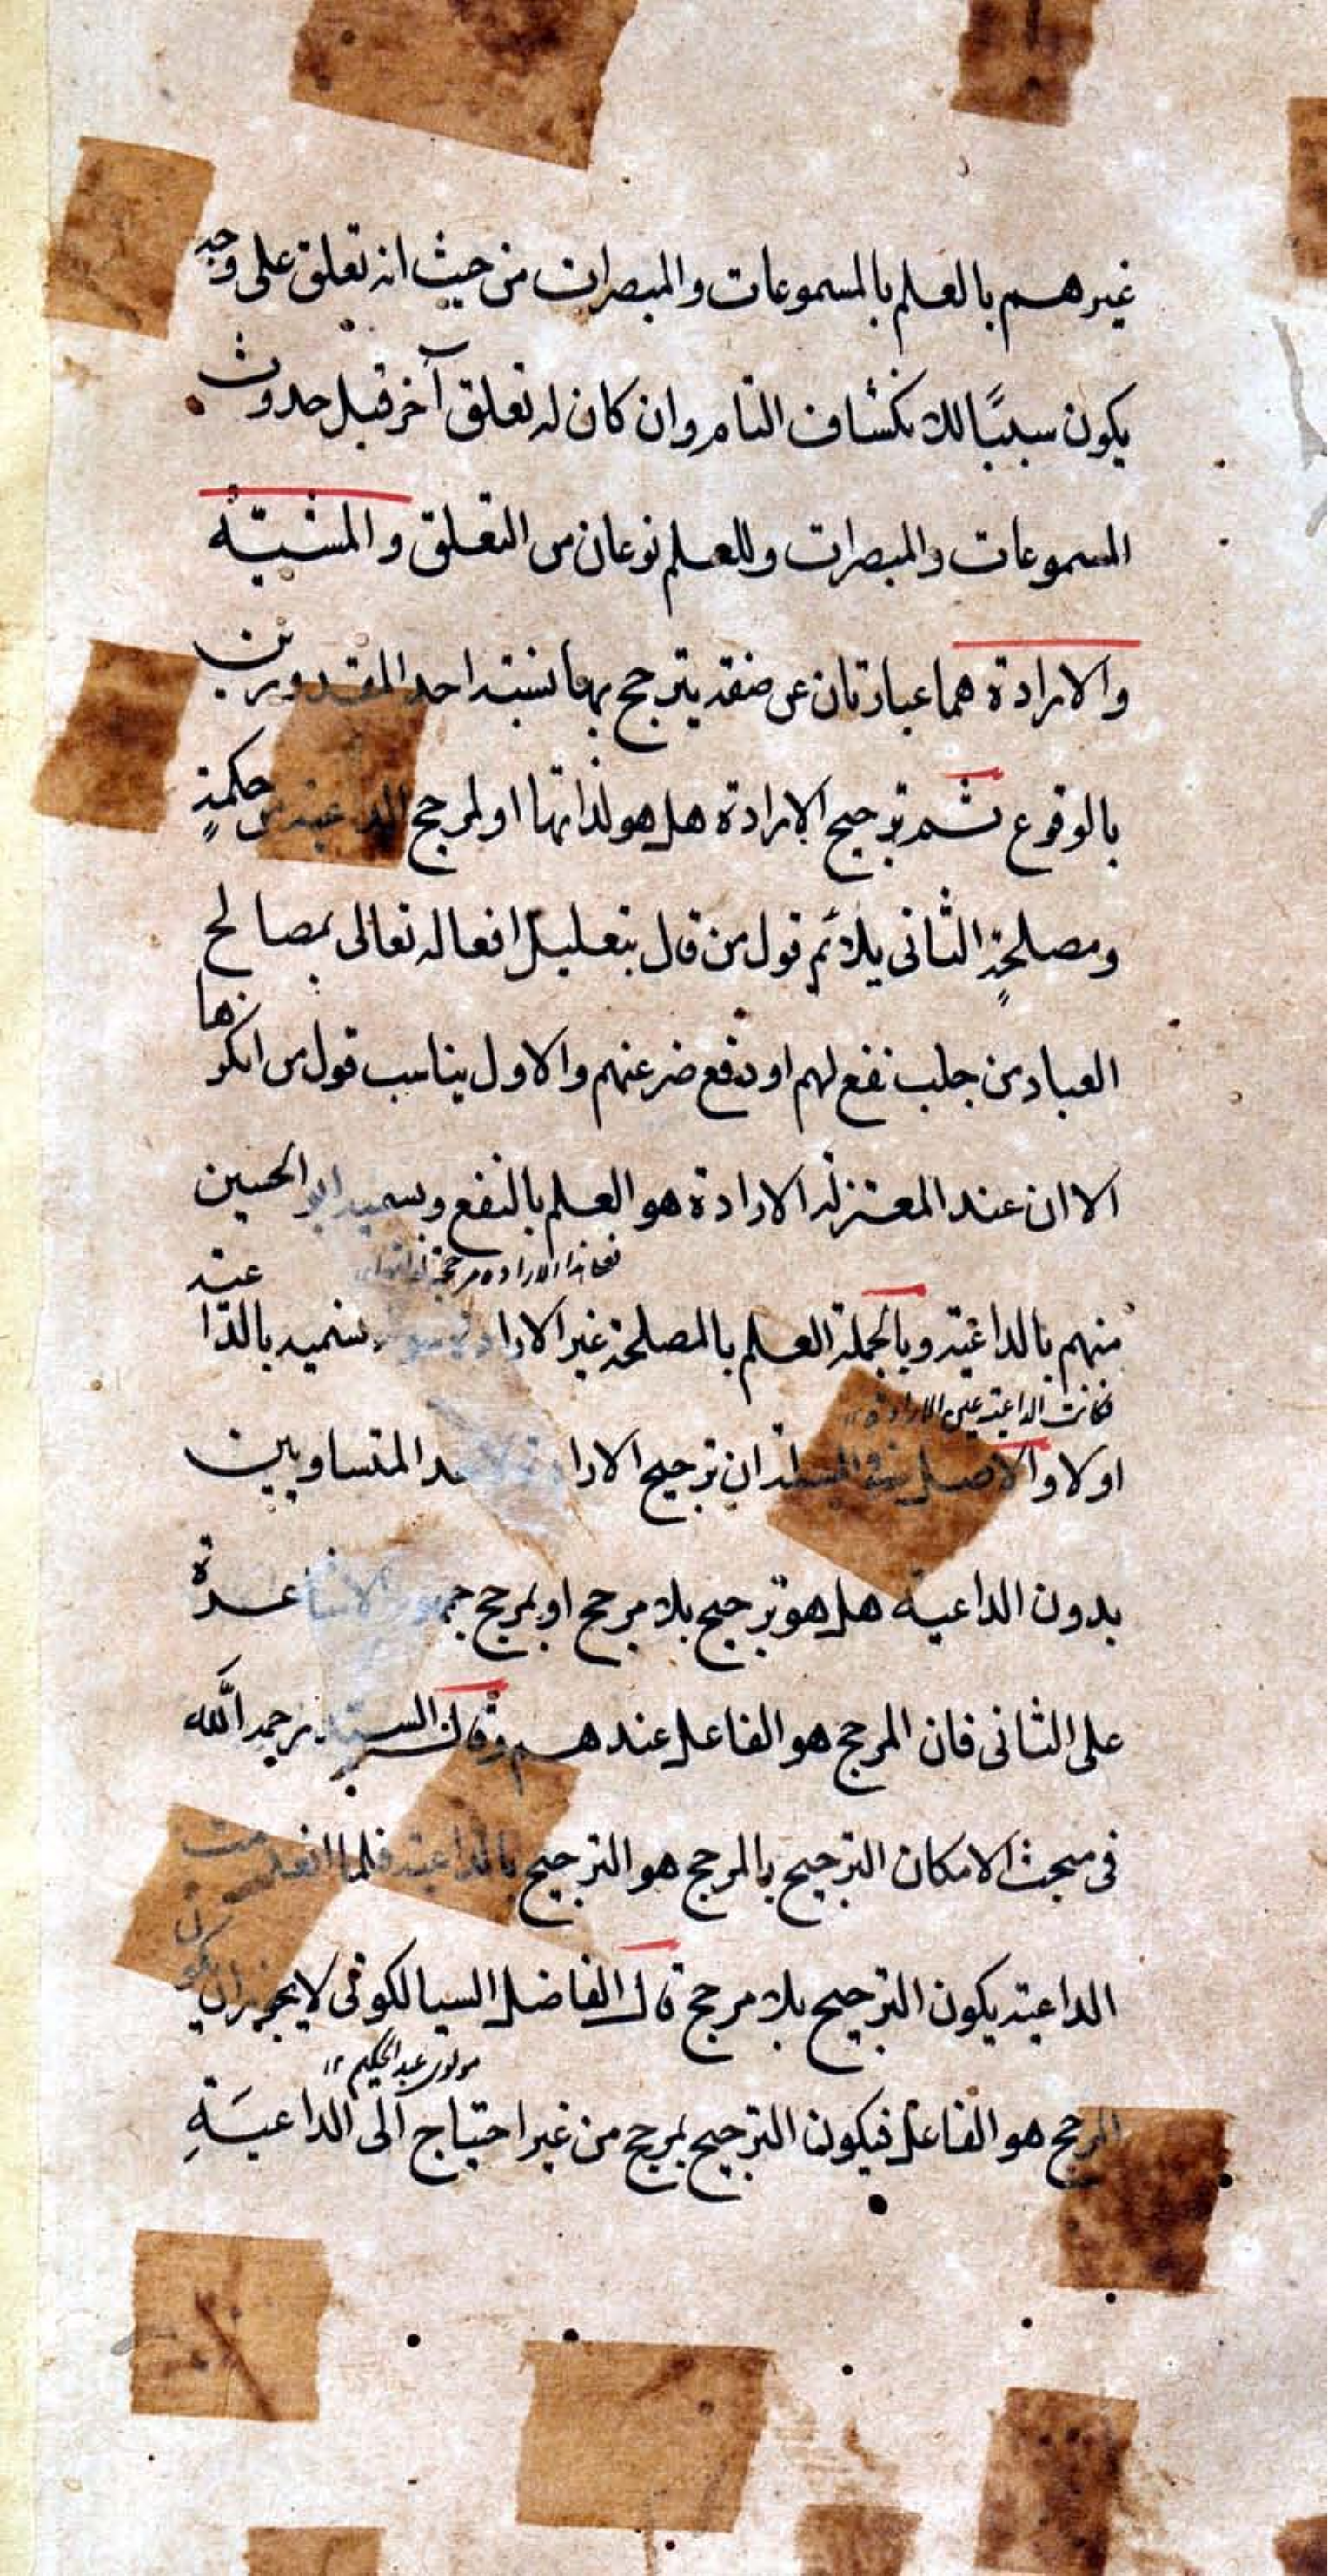 غيرهم بالعلم بالمسموعات والمبصرات من حيث انه تعلق على وجه
يكون سببًا للانكشاف التام وان كان له تعلق آخر قبل حدوث
المسموعات والمبصرات وللعلم نوعان من التعلق والمشيّة
والارادة هما عبارتان عن صفة يترجح بها نسبة احد المقدورين
بالوقوع ثم ترجيح الارادة هل هو لذاتها او لمرجح الداعية من حكمةٍ
ومصلحةٍ الثانى يلائم قول من قال بتعليل افعاله تعالى بمصالح
العباد من جلب نفع لهم او دفع ضر عنهم والاول يناسب قول من انكرها
الا ان عند المعتزلة الارادة هو العلم بالنفع ويسميه ابو الحسين
فعلى هذا الارادة مرجحة
منهم بالداعية وبالجملة العلم بالمصلحة غير الارادة سواء يسميه بالداعية
فكانت الداعية عين الارادة ١٢
اولا والاصل فى المسئلة ان ترجيح الارادة لاحد المتساويين
بدون الداعية هل هو ترجيح بلا مرجح او بمرجح جمهور الاشاعرة
على الثانى فان المرجح هو الفاعل عندهم وقال السيد رحمه الله
فى مبحث الامكان الترجيح بالمرجح هو الترجيح بالداعية فلما انعدمت
الداعية يكون الترجيح بلا مرجح قال الفاضل السيالكوتى لا يجوز ان يكون
مولوى عبد الحكيم ١٢
المرجح هو الفاعل فيكون الترجيح بمرجح من غير احتياج الى الداعيَةِ